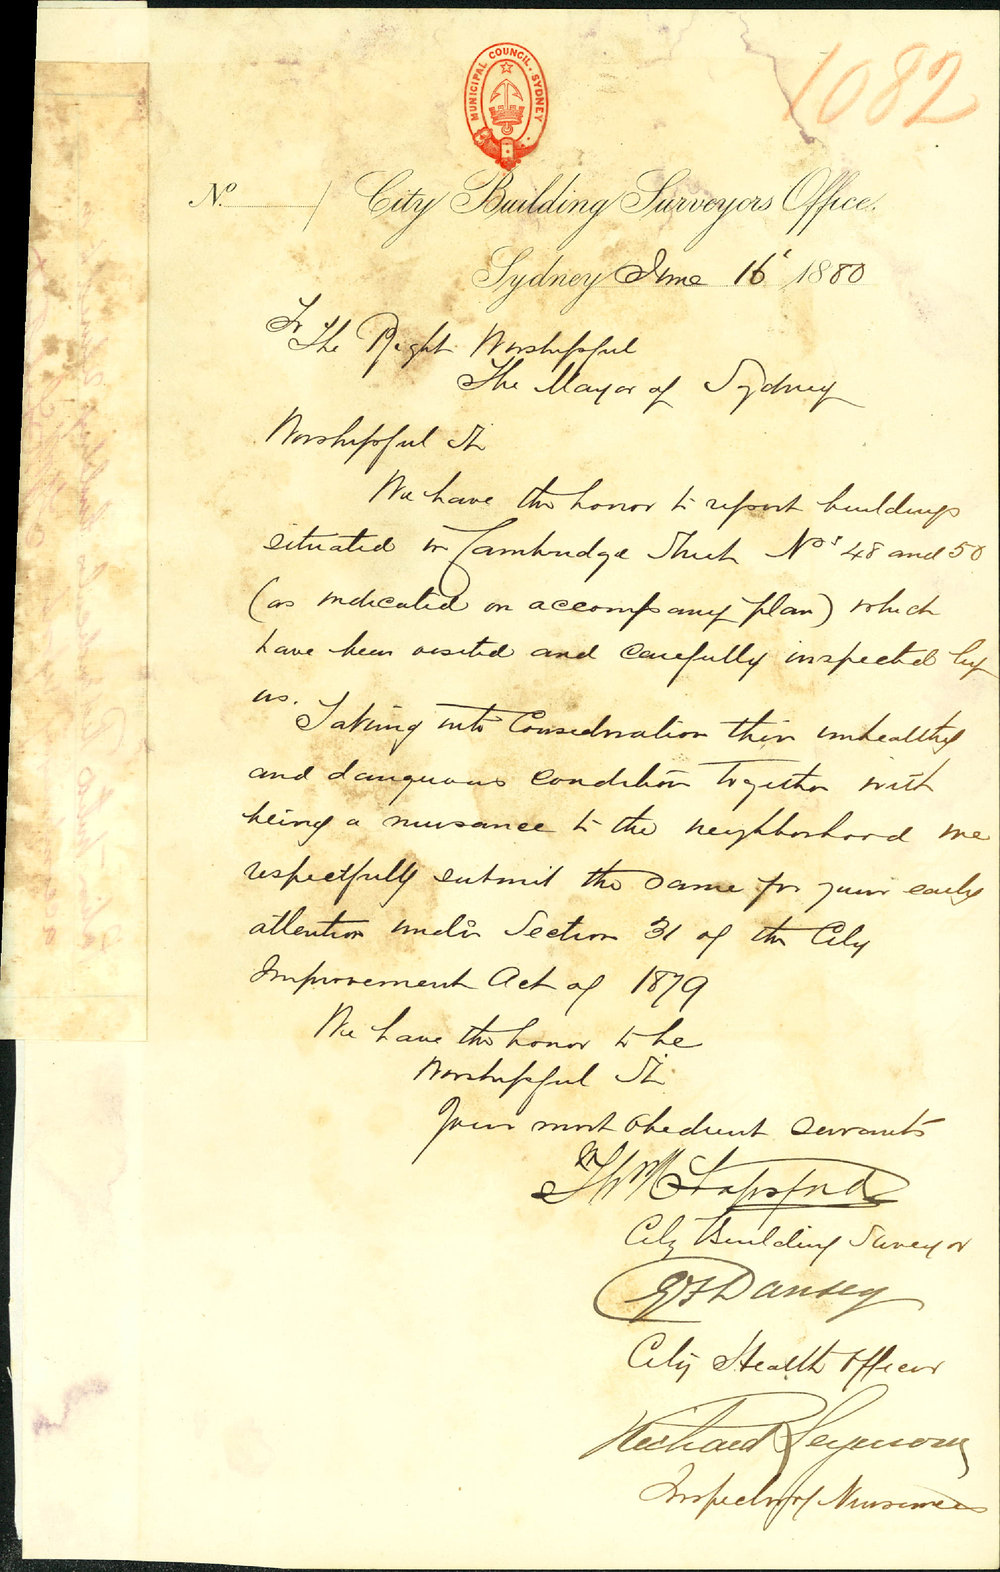 MUNICIPAL COUNCIL. SYDNEY
1082
No. / City Building Surveyors Office.
Sydney June 16t 1880
To
The Right Worshipful
The Mayor of Sydney
Worshipful Sir
We have the honor to report buildings
situated in Cambridge Street Nos 48 and 50
(as indicated on accompany plan) which
have been visited and carefully inspected by
us.
Taking into Consideration their unhealthy
and dangerous condition together with
being a nuisance to the neighborhood we
respectfully submit the same for your early
attention under Section 31 of the City
Improvement Act of 1879
We have the honor to be
Worshipful Sir
Your most obedient servants
Stapsford
City Building Surveyor
GF Dansey
City Health Officer
Richard Seymour
Inspector of Nuisances